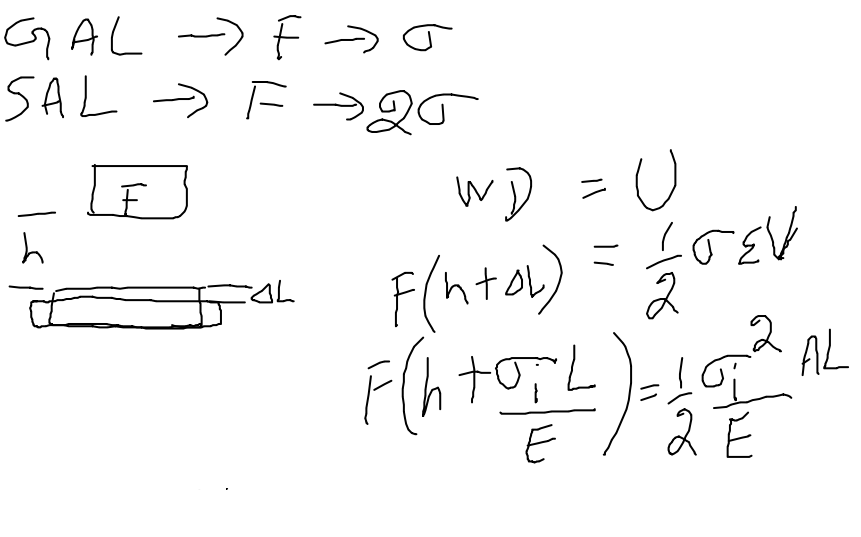 GAL → F → σ
SAL → F → 2σ
F
h
ΔL
WD = U
F(h+ΔL) = 1/2 σεV
F(h + σiL/E) = 1/2 σi²/E AL